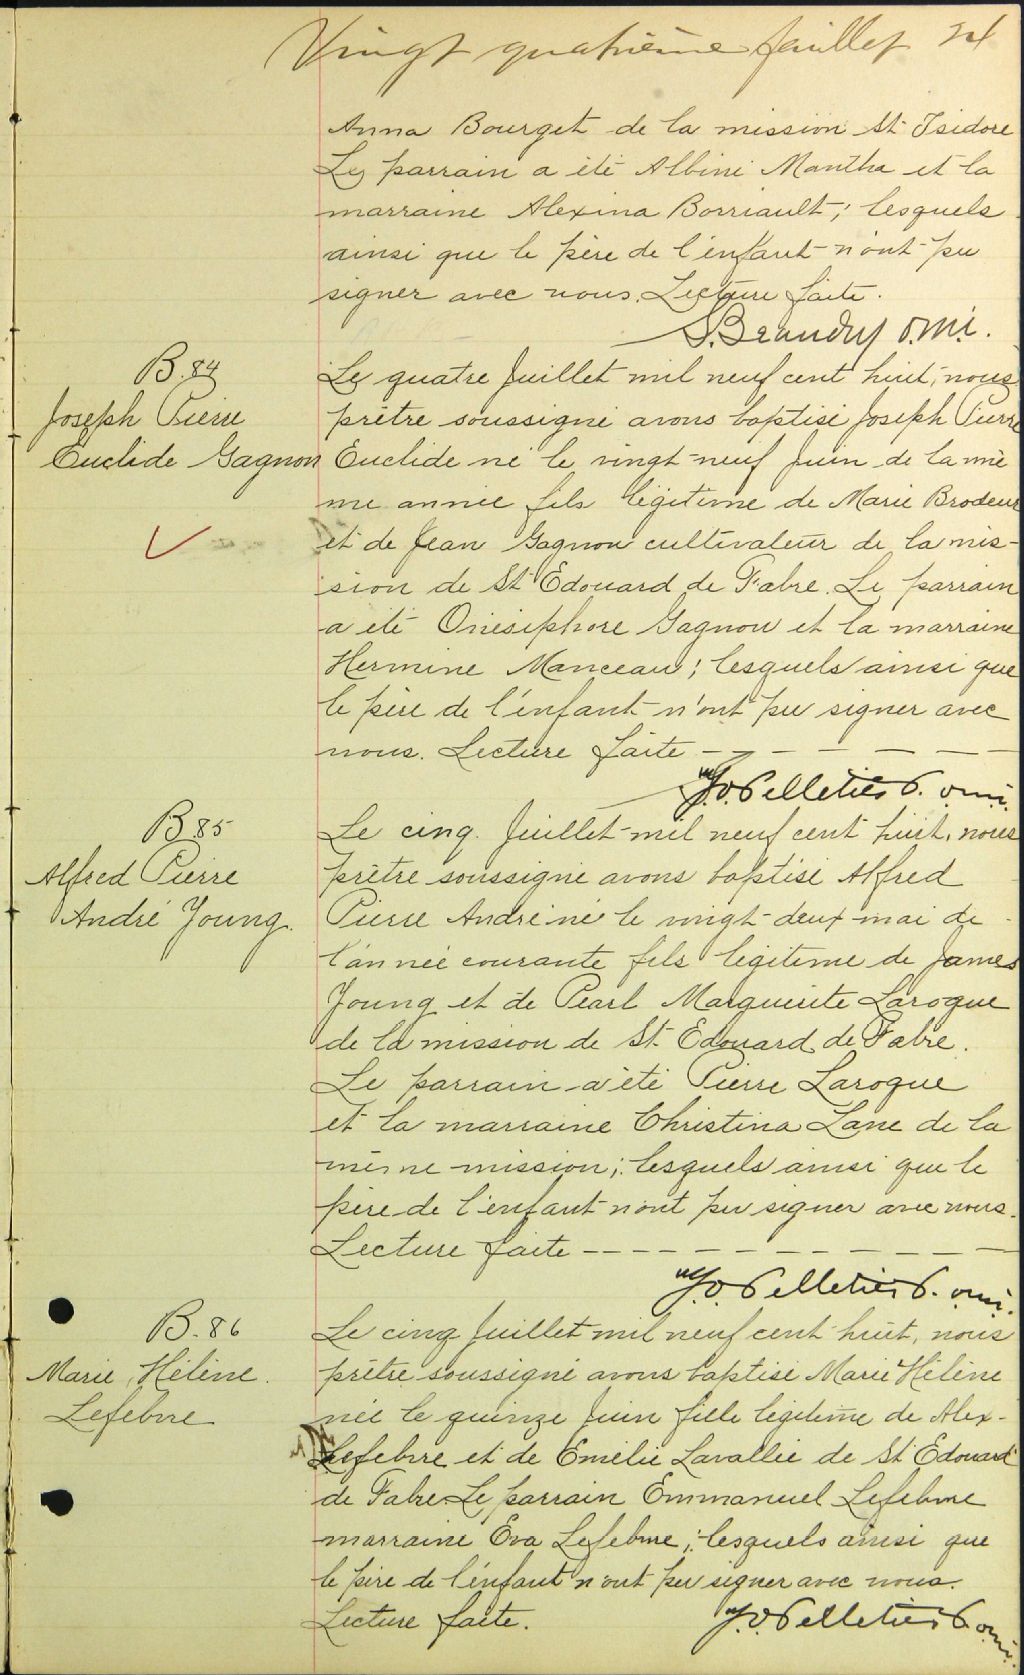 Vingt quatrième feuillet 24
Anna Bourget de la mission St Isidore
Le parrain a été Albini Mantha et la
marraine Alexina Borriault; lesquels
ainsi que le père de l'enfant n'ont pu
signer avec nous. Lecture faite.
S. Beaudry o.m.i.
B. 84
Joseph Pierre
Euclide Gagnon
Le quatre Juillet mil neuf cent huit, nous
prêtre soussigné avons baptisé Joseph Pierre
Euclide né le vingt-neuf Juin de la mê
me année fils légitime de Marie Brodeur
et de Jean Gagnon cultivateur de la mis-
sion de St Edouard de Fabre. Le parrain
a été Onésiphore Gagnon et la marraine
Hermine Manceau; lesquels ainsi que
le père de l'enfant n'ont pu signer avec
nous. Lecture faite - - - - - -
J.O. Pelletier P. o.m.i.
B 85
Alfred Pierre
André Young.
Le cinq Juillet mil neuf cent huit, nous
prêtre soussigné avons baptisé Alfred
Pierre André né le vingt-deux mai de
l'année courante fils légitime de James
Young et de Pearl Marguerite Laroque
de la mission de St Edouard de Fabre.
Le parrain a été Pierre Laroque
et la marraine Christina Lane de la
même mission; lesquels ainsi que le
père de l'enfant n'ont pu signer avec nous.
Lecture faite - - - - - - - - - -
J.O. Pelletier P. o.m.i.
B. 86
Marie Hélène
Lefebvre
Le cinq Juillet mil neuf cent huit, nous
prêtre soussigné avons baptisé Marie Hélène
née le quinze Juin fille légitime de Alex-
Lefebvre et de Emélie Lavallée de St Edouard
de Fabre. Le parrain Emmanuel Lefebvre
marraine Eva Lefebvre; lesquels ainsi que
le père de l'enfant n'ont pu signer avec nous.
Lecture faite. J.O. Pelletier P. o.m.i.